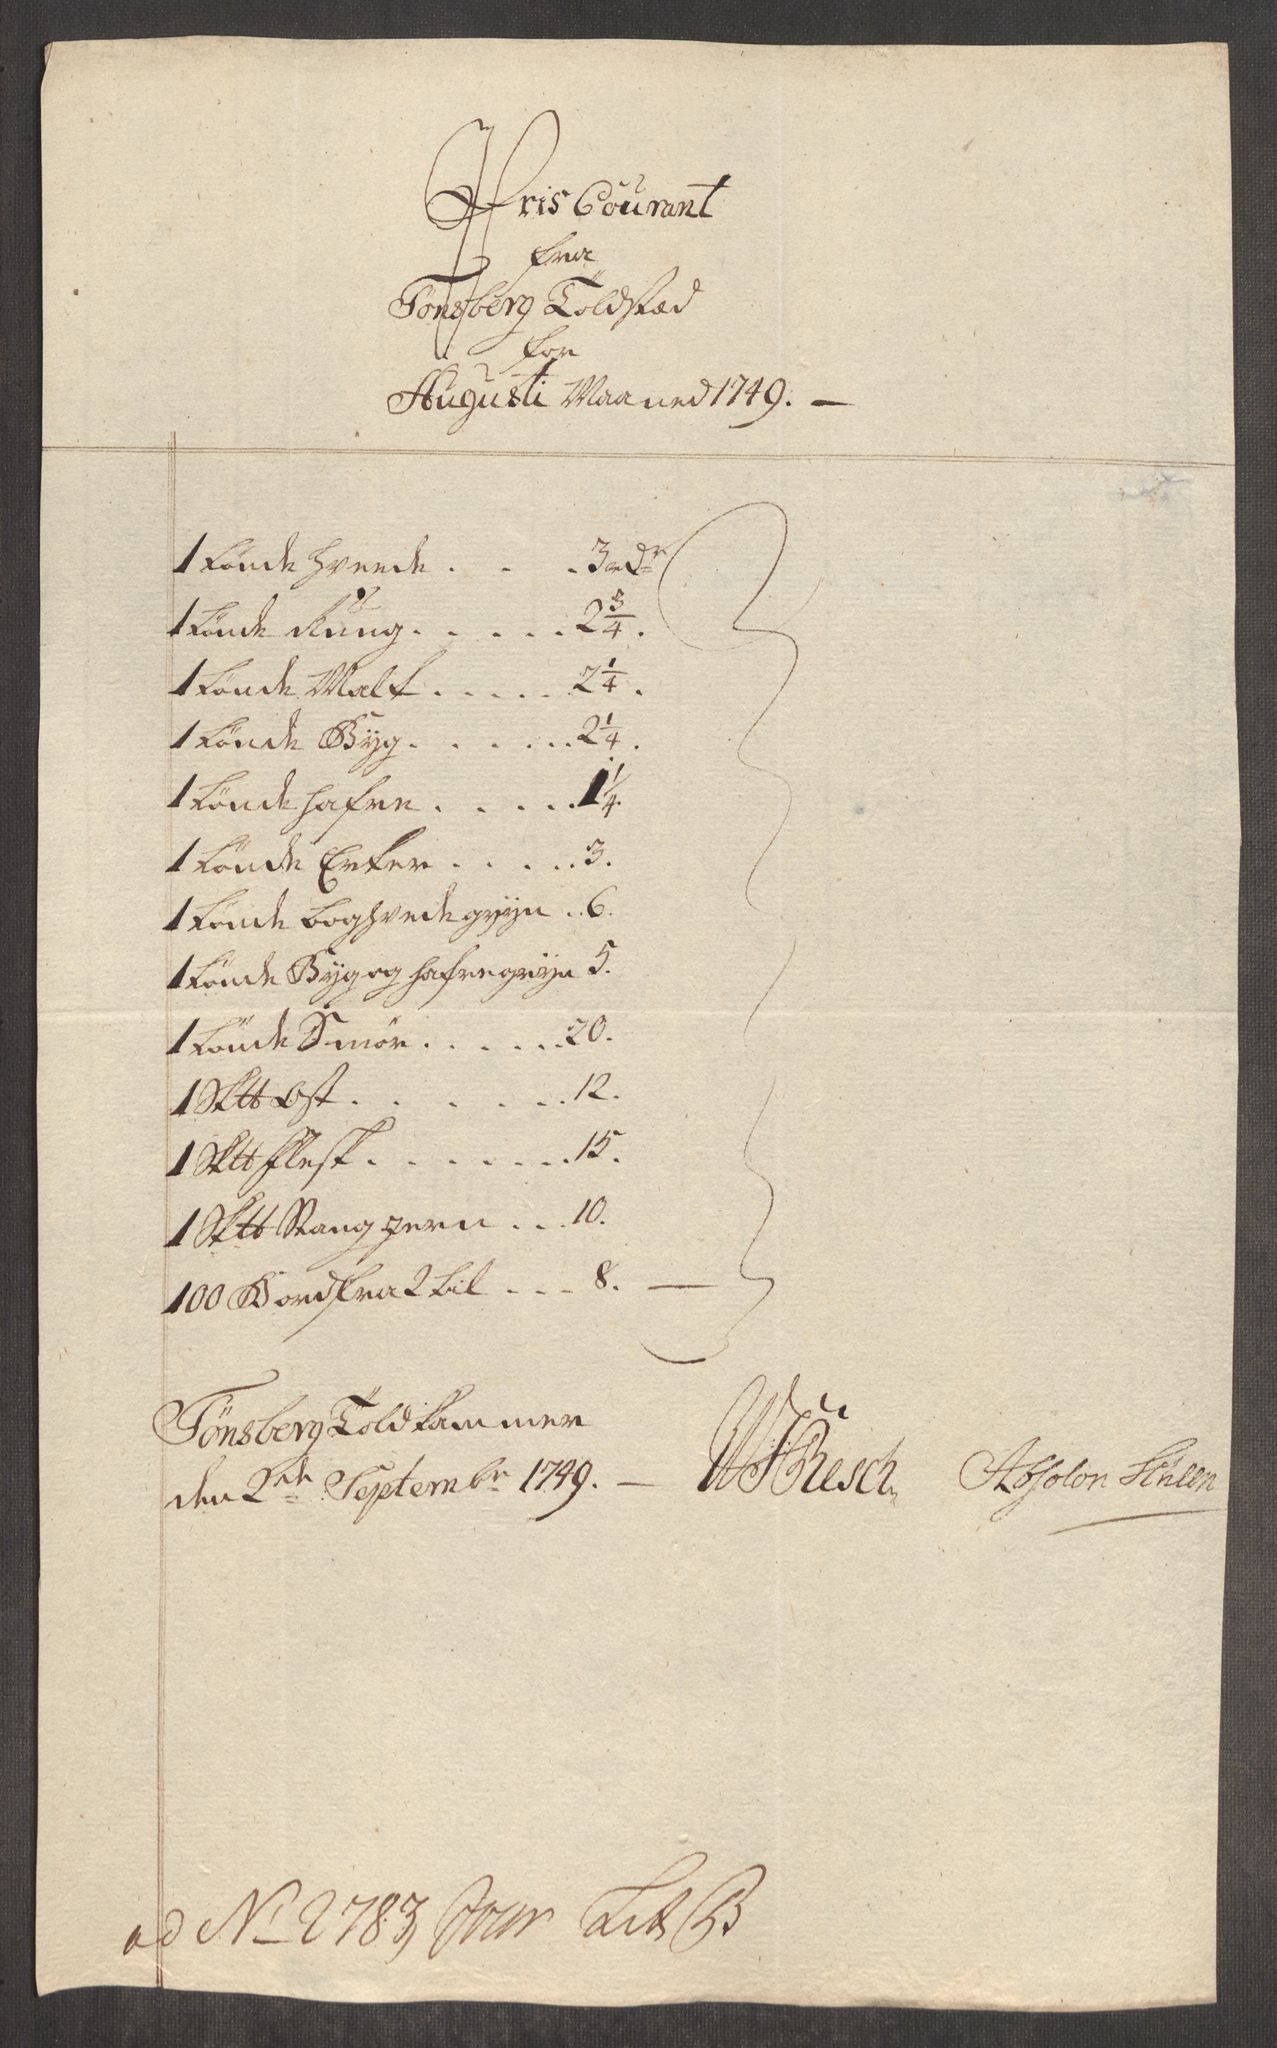 Pris Courant
fra
Tönsberg Toldsted
for
Augusti Maaned 1749. —
1 tönde hveede . . . 3 rdr
1 tönde Rüug . . . . . 2 3/4.
1 tönde Malt . . . . . 2 1/4.
1 tönde Byg . . . . . . 2 1/4.
1 tönde hafre . . . . . 1 1/4.
1 tönde Erter . . . . . 3.
1 tönde boghvede gryn . . 6.
1 tönde Byg og hafregryn 5.
1 tönde Smör . . . . . . 20.
1 Sk℔ Ost . . . . . . 12.
1 Sk℔ flesk . . . . . . . 15.
1 Sk℔ Stang jern . . . 10.
100 Bord fra 2 til . . . 8. —
Tönsberg Told kammer
den 2de Septembr 1749. — Resch Absolon
ad No 2783 Lit B